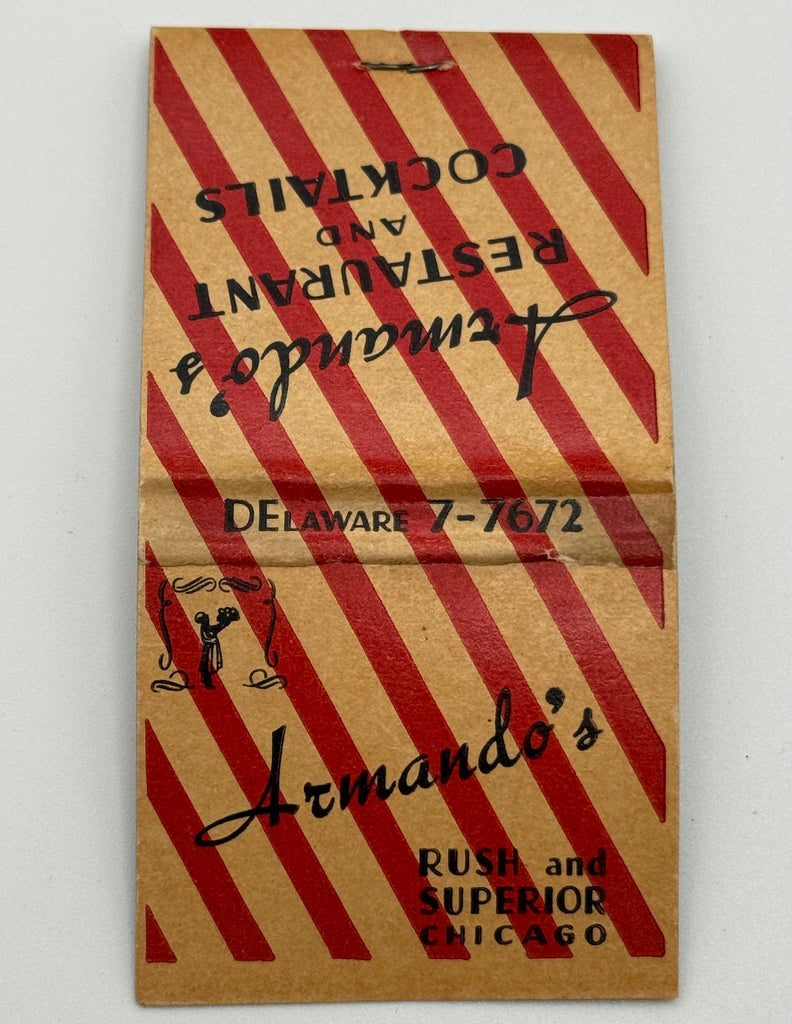 Armando's
RESTAURANT
AND
COCKTAILS
DELAWARE 7-7672
Armando's
RUSH and
SUPERIOR
CHICAGO